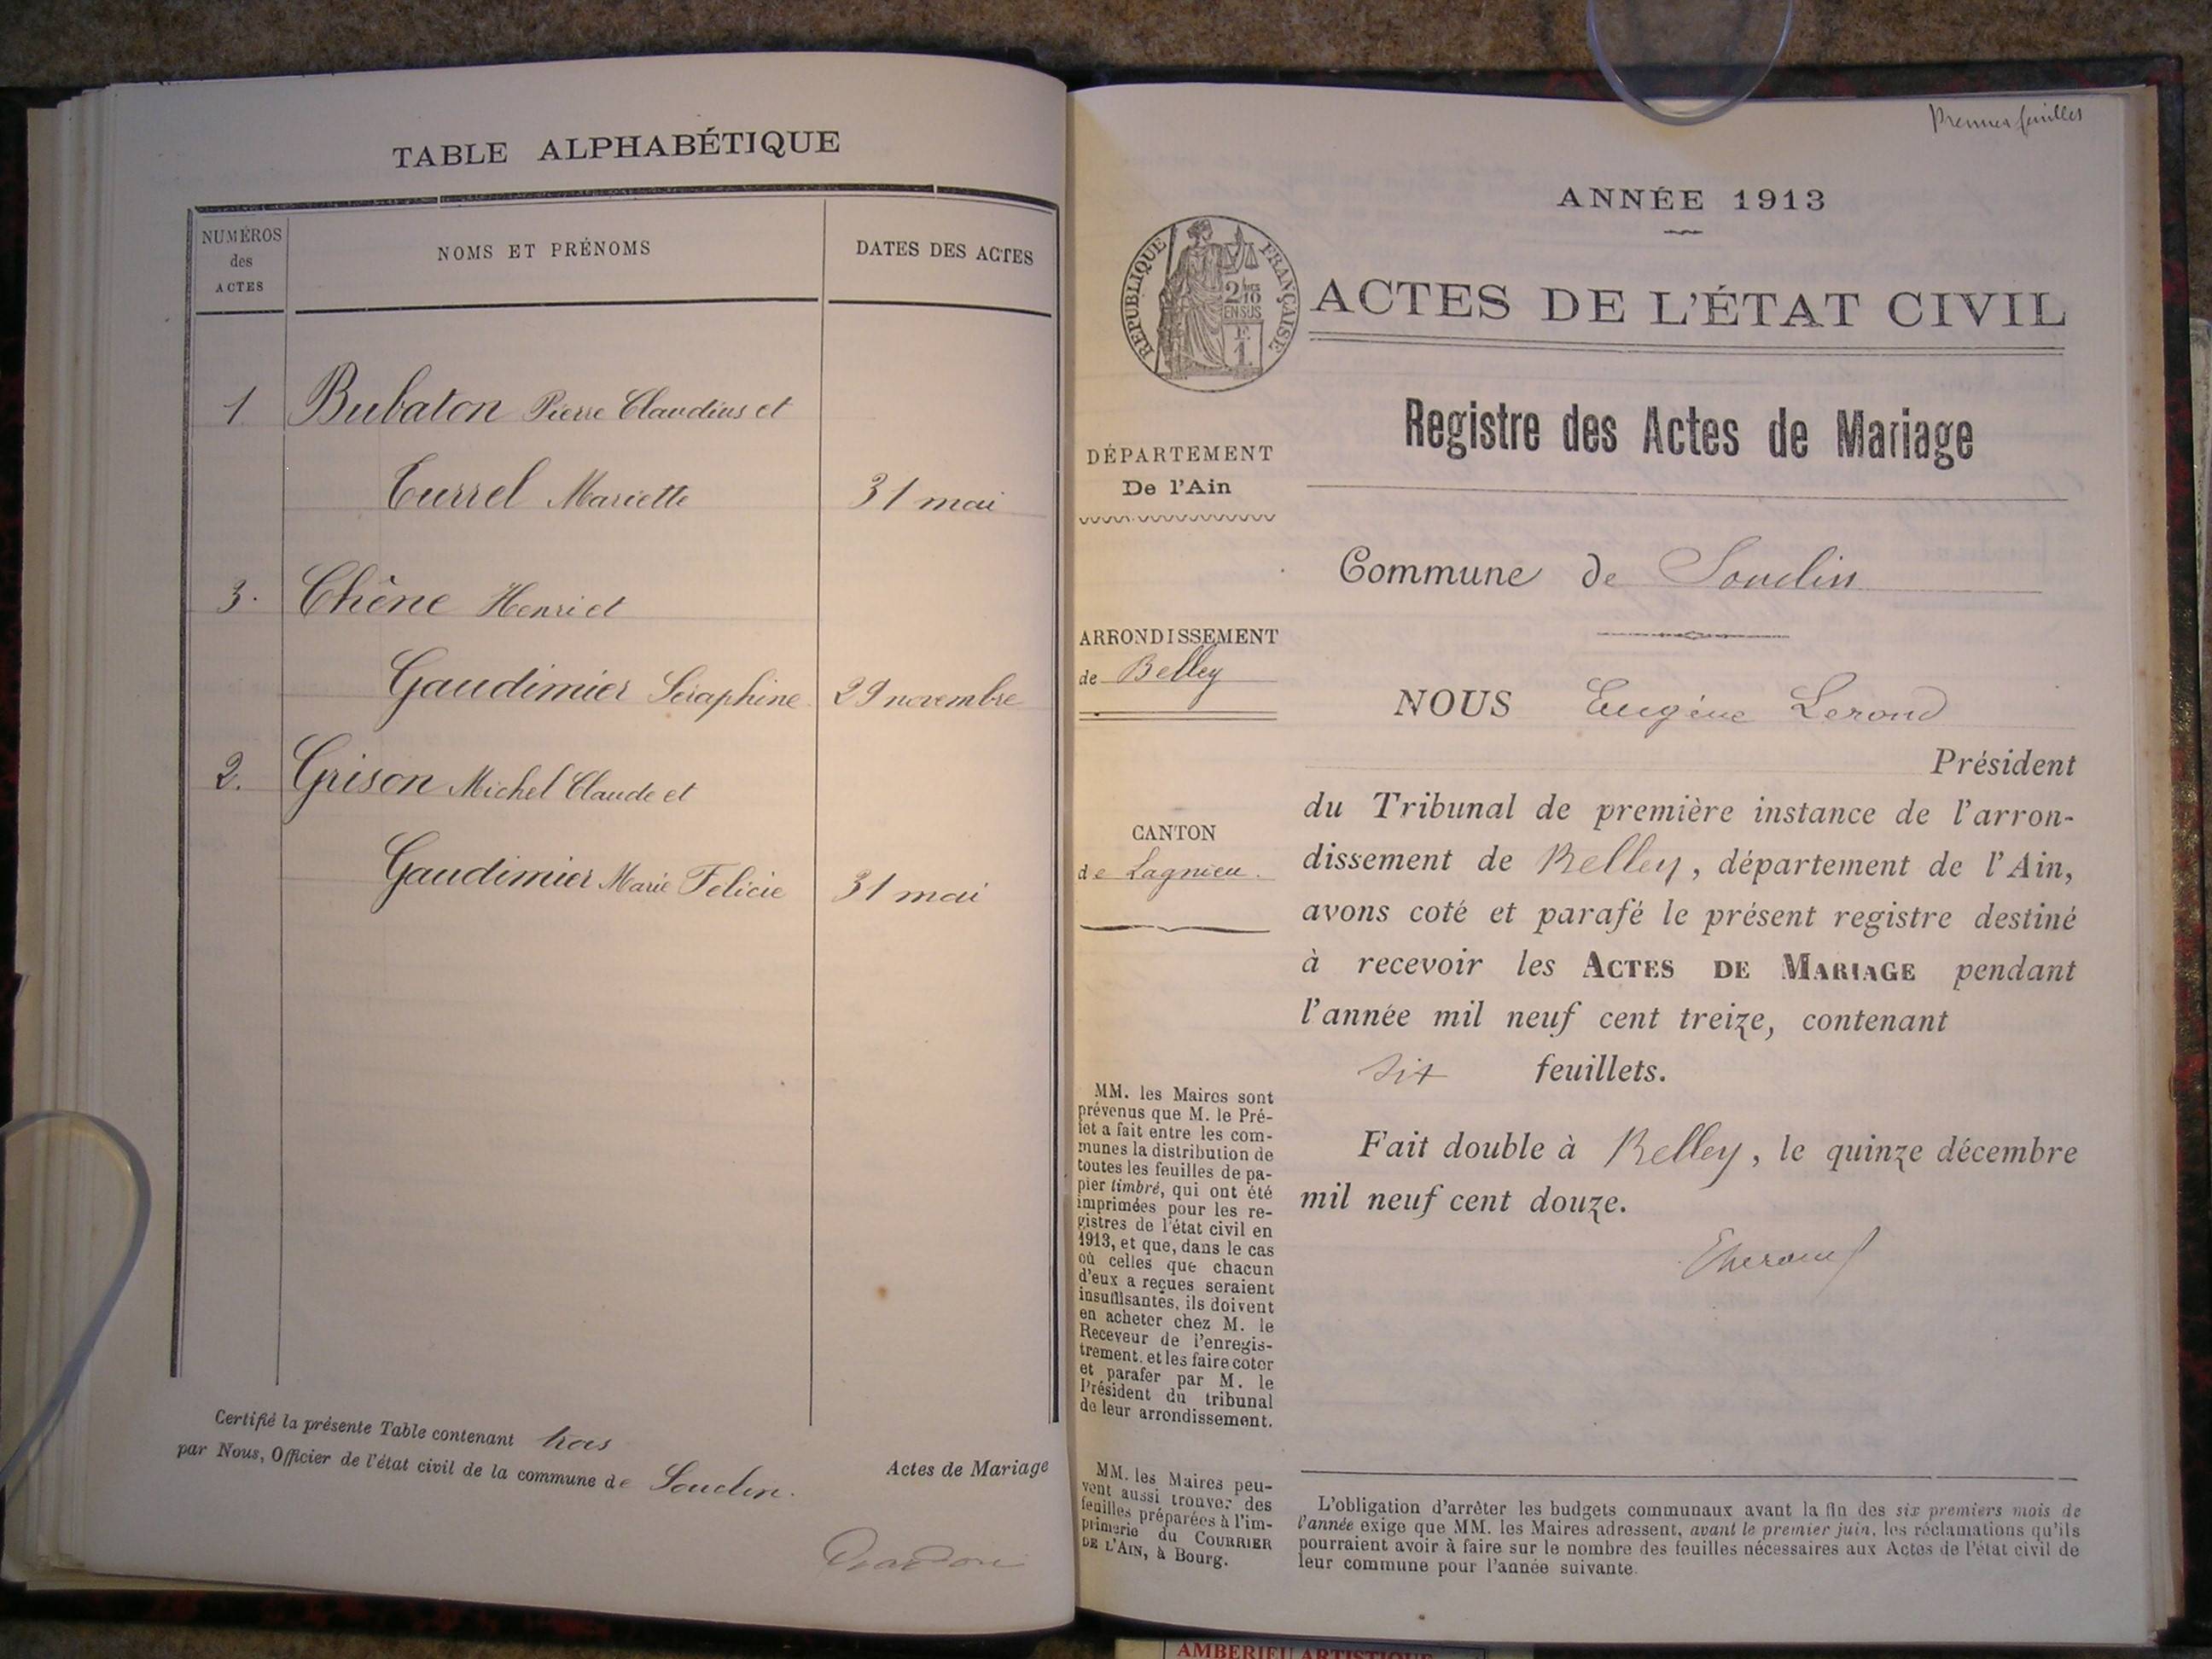 TABLE ALPHABÉTIQUE
NUMÉROS
des
ACTES
NOMS ET PRÉNOMS
DATES DES ACTES
1 Bubaton Pierre Claudius et
Turrel Mariette 31 mai
3. Chêne Henri et
Gaudimier Séraphine 29 novembre
2. Grison Michel Claude et
Gaudimier Marie Felicie 31 mai
Certifié la présente Table contenant trois
Actes de Mariage
par Nous, Officier de l'état civil de la commune de Souclin.
Premier feuillet
ANNÉE 1913
REPUBLIQUE FRANÇAISE
2/10
EN SUS
1
ACTES DE L'ÉTAT CIVIL
Registre des Actes de Mariage
DÉPARTEMENT
De l'Ain
ARRONDISSEMENT
de Belley
CANTON
de Lagnieu.
MM. les Maires sont
prévenus que M. le Pré-
fet a fait entre les com-
munes la distribution de
toutes les feuilles de pa-
pier timbré, qui ont été
imprimées pour les re-
gistres de l'état civil en
1913, et que, dans le cas
où celles que chacun
d'eux a reçues seraient
insuffisantes, ils doivent
en acheter chez M. le
Receveur de l'enregis-
trement, et les faire coter
et parafer par M. le
Président du tribunal
de leur arrondissement.
MM. les Maires peu-
vent aussi trouver des
feuilles préparées à l'im-
primerie du COURRIER
DE L'AIN, à Bourg.
Commune de Souclin
NOUS Eugène Lerond
Président
du Tribunal de première instance de l'arron-
dissement de Belley, département de l'Ain,
avons coté et parafé le présent registre destiné
à recevoir les ACTES DE MARIAGE pendant
l'année mil neuf cent treize, contenant
six feuillets.
Fait double à Belley, le quinze décembre
mil neuf cent douze.
L'obligation d'arrêter les budgets communaux avant la fin des six premiers mois de
l'année exige que MM. les Maires adressent, avant le premier juin, les réclamations qu'ils
pourraient avoir à faire sur le nombre des feuilles nécessaires aux Actes de l'état civil de
leur commune pour l'année suivante.
AMBERIEU ARTISTIQUE